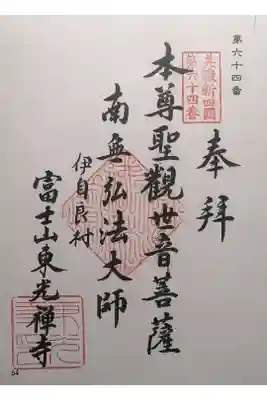 第六十四番
奉拝
美濃新四国
第六十四番
本尊聖觀世音菩薩
南無弘法大師
伊自良村
富士山東光禅寺
64